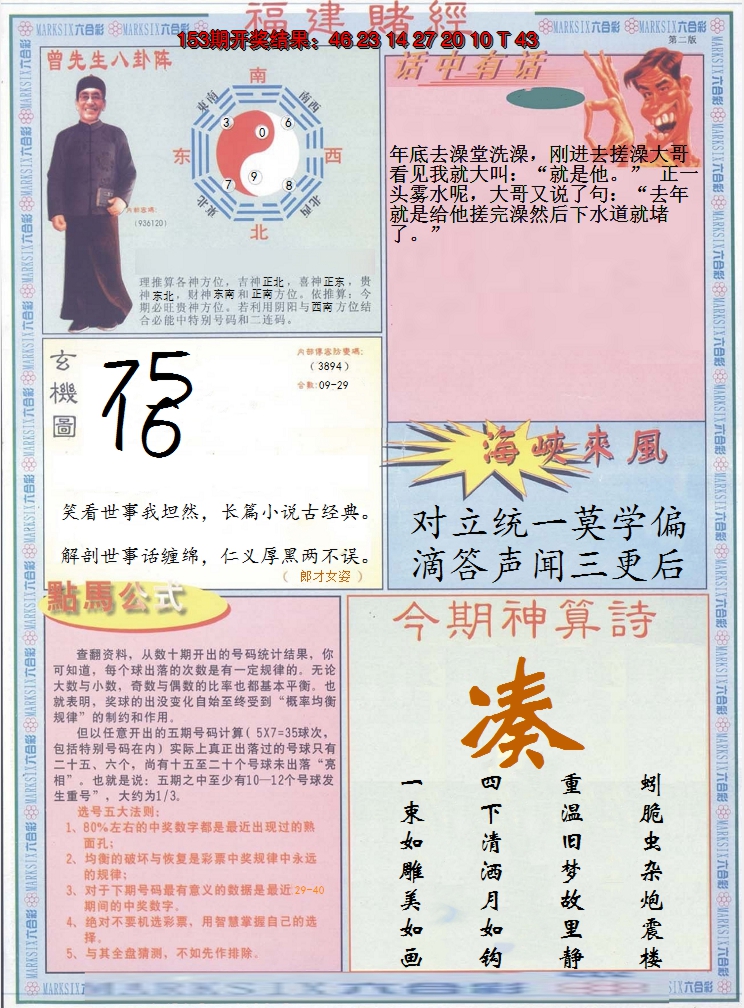 福建賭經
153期开奖结果：46 23 14 27 20 10 T 43
第二版
MARKSIX六合彩
曾先生八卦阵
南
东南
南西
东
西
东北
北西
北
3
0
6
7
9
8
内部密碼：
（936120）
理推算各神方位，吉神正北，喜神正东，贵
神东北，财神东南和正南方位。依推算：今
期必旺贵神方位。若利用阴阳与西南方位结
合必能中特别号码和二连码。
话中有话
年底去澡堂洗澡，刚进去搓澡大哥
看见我就大叫：“就是他。” 正一
头雾水呢，大哥又说了句：“去年
就是给他搓完澡然后下水道就堵
了。”
玄機圖
75
16
（3894）
合数：09-29
笑看世事我坦然，长篇小说古经典。
解剖世事话缠绵，仁义厚黑两不误。
（ 郎才女姿 ）
海峽來風
对立统一莫学偏
滴答声闻三更后
點馬公式
查翻资料，从数十期开出的号码统计结果，你
可知道，每个球出落的次数是有一定规律的。无论
大数与小数，奇数与偶数的比率也都基本平衡。也
就表明，奖球的出没变化自始至终受到“概率均衡
规律”的制约和作用。
但以任意开出的五期号码计算( 5X7=35球次，
包括特别号码在内）实际上真正出落过的号球只有
二十五、六个，尚有十五至二十个号球未出落“亮
相”。也就是说：五期之中至少有10—12个号球发
生重号”，大约为1/3。
选号五大法则：
1、80%左右的中奖数字都是最近出现过的熟
面孔；
2、均衡的破坏与恢复是彩票中奖规律中永远
的规律；
3、对于下期号码最有意义的数据是最近29-40
期间的中奖数字。
4、绝对不要机选彩票，用智慧掌握自己的选
择。
5、与其全盘猜测，不如先作排除。
今期神算詩
凑
蚓脆虫杂炮震楼
重温旧梦故里静
四下清洒月如钩
一束如雕美如画